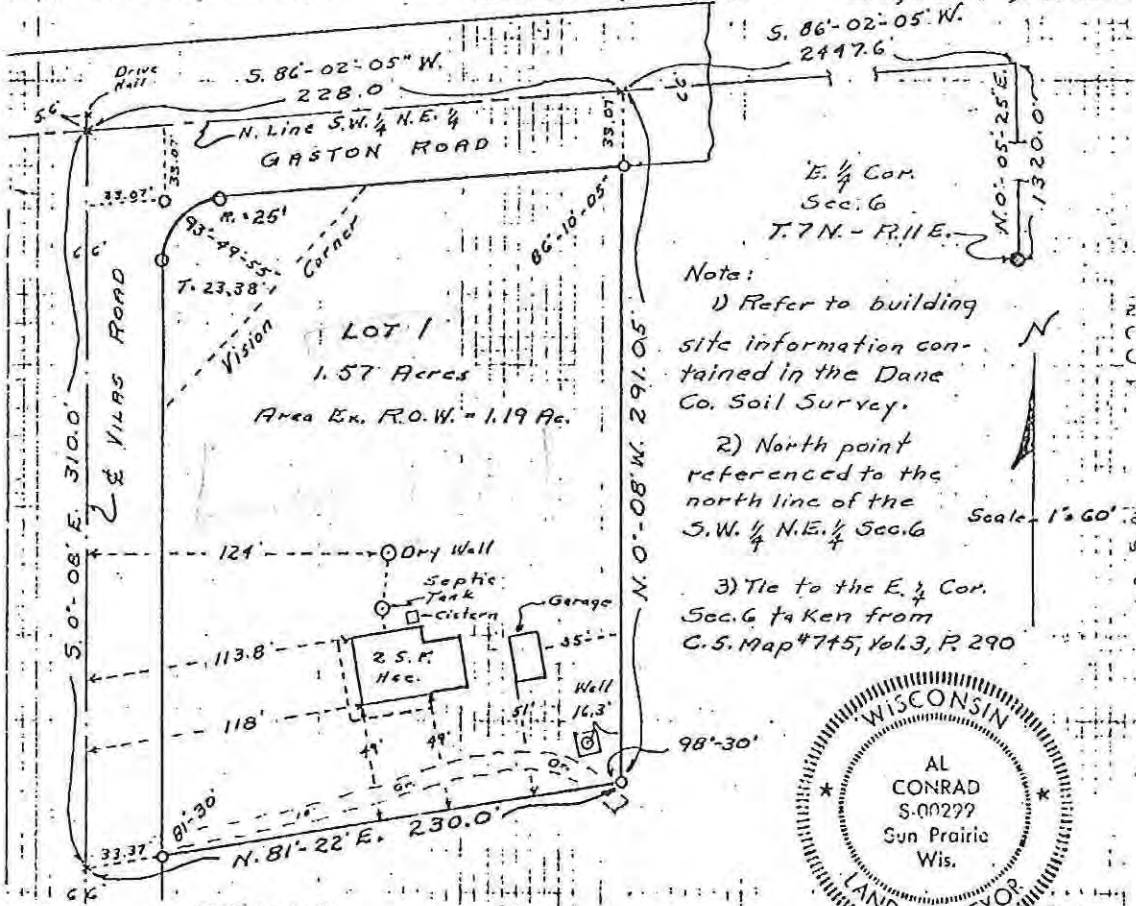 S. 86°-02'-05" W.
2447.6'
Drive
Nail
S. 86°-02'-05" W.
228.0'
66'
N. Line S.W. ¼ N.E. ¼
GASTON ROAD
33.07'
33.07'
33.07'
66'
N. 0°-05'-25" E.
1320.0'
E. ¼ Cor.
Sec. 6
T. 7 N. - R. 11 E.
R. = 25'
93°-49'-55"
T. 23.38'
Vision Corner
86°-10'-05"
66'
℄ VILAS ROAD
S. 0°-08' E. 310.0'
LOT 1
1.57 Acres
Area Ex. R.O.W. = 1.19 Ac.
N. 0°-08' W. 291.05'
Note:
1) Refer to building
site information con-
tained in the Dane
Co. Soil Survey.
2) North point
referenced to the
north line of the
S.W. ¼ N.E. ¼ Sec. 6
3) Tie to the E. ¼ Cor.
Sec. 6 taKen from
C.S. Map #745, Vol. 3, P. 290
N
Scale - 1" = 60'
124'
Dry Well
Septic
Tank
Cistern
Garage
113.8'
2 S. F.
Hse.
35'
118'
Well
16.3'
51'
49'
49'
98°-30'
81°-30'
33.37'
N. 81°-22' E. 230.0'
66'
WISCONSIN
AL
CONRAD
S-00299
Sun Prairie
Wis.
LAND